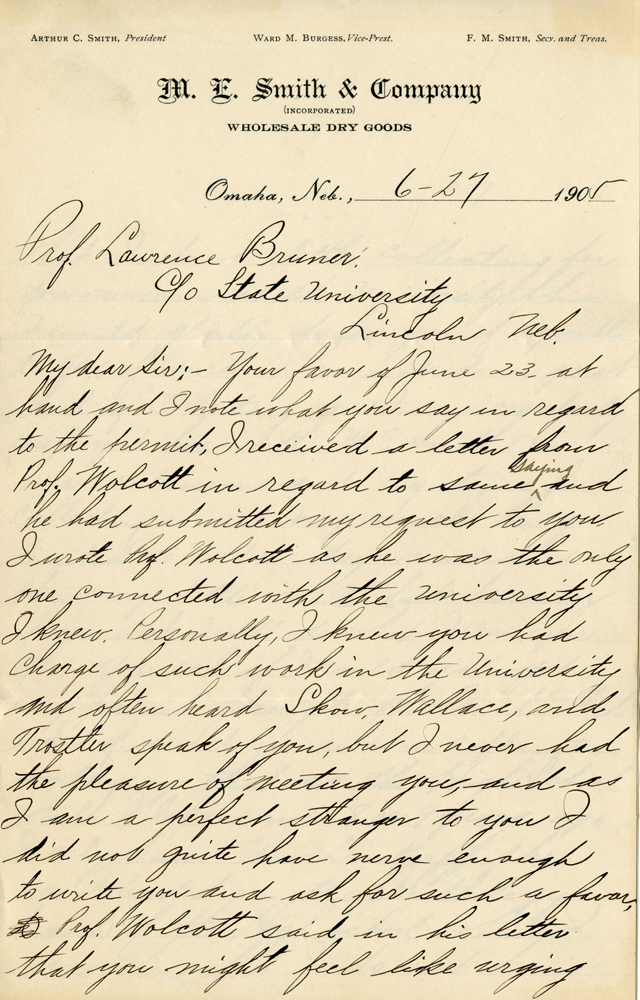 Arthur C. Smith, President    Ward M. Burgess, Vice-Prest.    F. M. Smith, Secy. and Treas.
M. E. Smith & Company
(INCORPORATED)
WHOLESALE DRY GOODS
Omaha, Neb., 6-27 1905
Prof. Lawrence Bruner.
C/o State University
Lincoln Neb.
My dear Sir:- Your favor of June 23- at
hand and I note what you say in regard
to the permit, I received a letter from
Prof. Wolcott in regard to same saying and
he had submitted my request to you
I wrote Prof. Wolcott as he was the only
one connected with the University
I knew. Personally, I knew you had
Charge of such work in the University
and often heard Skow, Wallace, and
Trostler speak of you, but I never had
the pleasure of meeting you, and as
I am a perfect stranger to you I
did not quite have nerve enough
to write you and ask for such a favor,
Prof. Wolcott said in his letter
that you might feel like urging